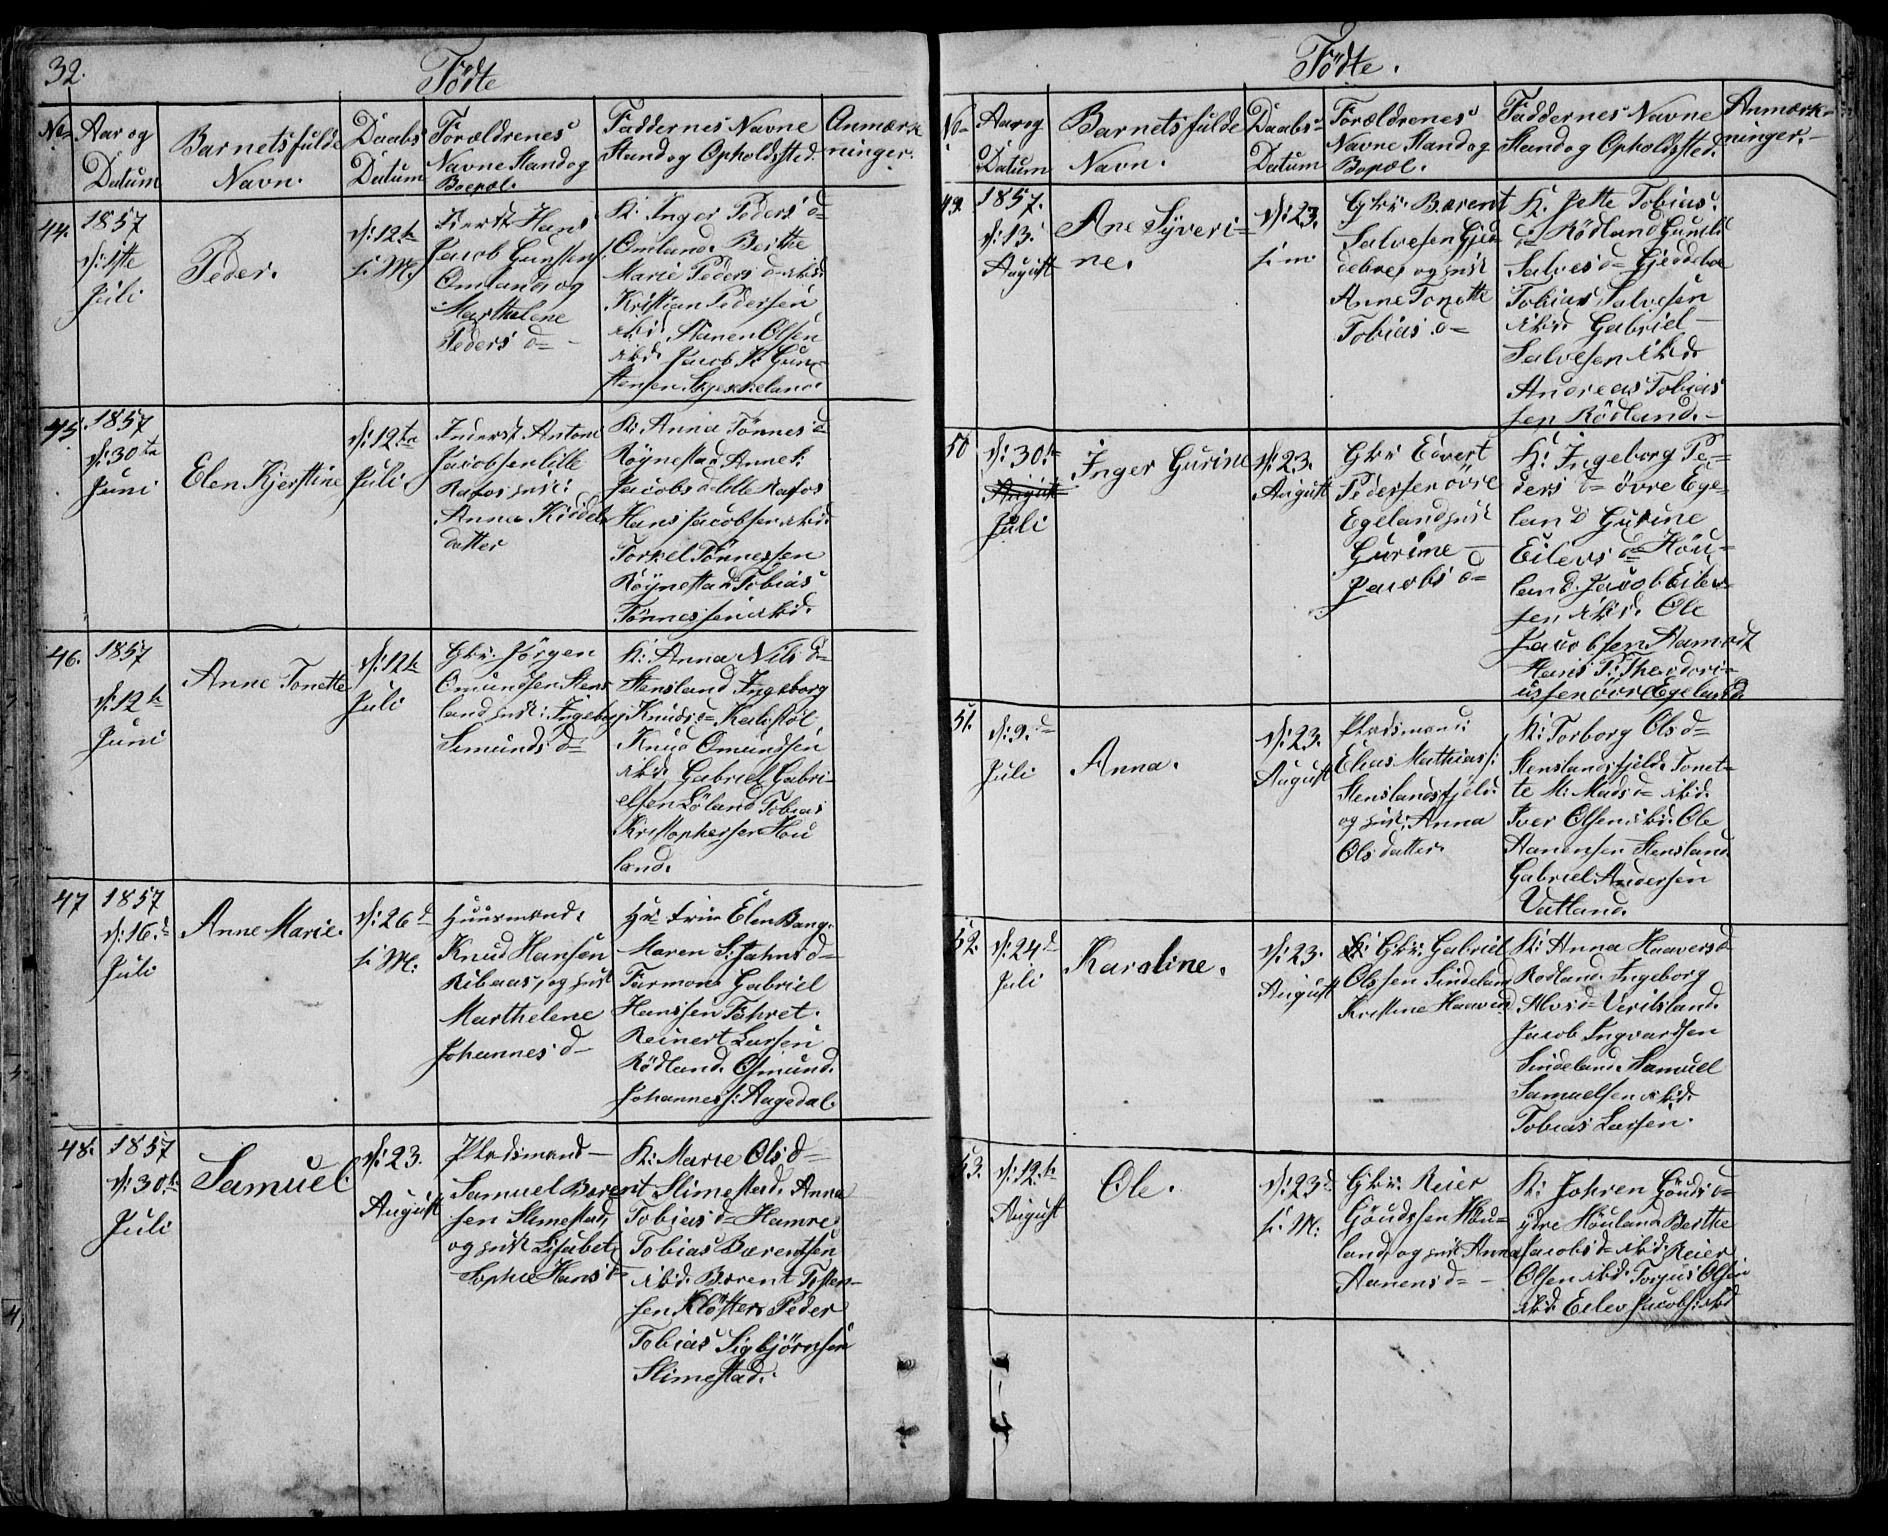 32.
Födte
No
Aar og
Datum
Barnets fulde
Navn.
Daabs
Datum
Forældrenes
Navne Stand og
Boepæl.
Faddernes Navne
Stand og Opholdsted.
Anmærk
ninger.
44.
1857
d: 1ste
Juli
Peder.
d: 12te
s: M:
Inderst Hans
Jacob Gunsten
Omland og
Marthelene
Peders d=
K: Inger Peders d=
Omland. Berthe
Marie Peders d= ibid.
Kristian Pedersen
ibid. Aanen Olsen
ibid. Jacob K: Gun
stensen
45
1857
d: 30te
Juni
Elen Kjerstine
d: 12te
Juli
Inderst Anton
Jacobsen lille
Rafos
Anna
datter
K: Anna Tönnes d=
Röynestad Anne S:
Jacobs d= lille Rafos
Hans Jacobsen ibid.
Torkel Tönnessen
Röynestad Tobias
Tönnessen ibid.
46.
1857
d: 12te
Juni
Anne Tonette
d: 12te
Juli
Gbr: Jörgen
Omundsen Stens
land Ingeborg
Semunds d=
K: Anna Nils d=
Stensland Ingeborg
Knuds d=
Knud Omundsen
ibid. Gabriel Gabri=
elsen Löland Tobias
Kristophersen Hou
land.
47
1857
d: 16de
Juli
Anne Marie.
d: 26de
s: M:
Huusmand.
Knud Hansen
Ribaas, og
Marthelene
Johannes d=
Elen Bang.
Maren S: Jahns d=
Gabriel
Hanssen
Reinert Larsen
Rödland. Osmund.
Johannes s: Augedal.
48.
1857
d: 30te
Juli
Samuel
d: 23.
August
Pladsmand—
Samuel Berent
sen Slimestad,
og Lisabet
Sophie Hans d=
K: Marie Ols d=
Slimestad. Anna
Tobias d= Hamre
Tobias Bærentsen
ibid. Berent Tosten—
sen Klöster Peder
Tobias Sigbjörnsen
Slimestad.
Födte.
No
Aar og
Datum
Barnets fulde
Navn.
Daabs=
Datum
Forældrenes
Navne Stand og
Bopæl.
Faddernes Navne
Stand og Opholdsted.
Anmærk=
ninger.
49.
1857.
d: 13.
August
Ane Syveri=
ne.
d: 23.
s: m.
Gbr: Bærent
Salvesen Gjed
deboe, og
Anne Tonette
Tobias d=
K: Jette Tobias
d= Rödland Gunild
Salves d= Gjeddeboe
Tobias Salvesen
ibid Gabriel—
Salvesen ibid.
Andreas Tobias
sen Rödland.
50
d: 30te
August
Juli
Inger Gurine
d: 23.
August
Gbr: Eivert
Pedersen övre
Egeland
Gurine
Jacobs d=
K: Ingeborg Pe=
ders d= övre Ege=
land Gurine
Eilevs d= Höu=
land. Jacob Eilev=
sen ibid. Ole
Jacobsen Aamodt
Hans P: Theodori=
ussen övre Egeland
51.
d: 9.
Juli
Anna.
d: 23.
August
Pladsmand:
Elias Mathias s:
Stenslandsfjeld
og Anna
Ols datter.
K: Torborg Ols d=
Stenslandsfjeld. Tonet=
te M: Mads d= ibid.
Iver Olsen ibid: Ole
Aanensen Stensland
Gabriel Andersen
Vatland.
52.
d: 24de
Juli
Karoline.
d: 23.
August
Gbr: Gabriel
Olssen Sindeland
Kristine Haaversd
K: Anna Haavers d
Rodland. Ingeborg
Alvs d= Veritsland.
Jacob Ingvardsen
Sindeland. Samuel
Samuelsen ibid.
Tobias Larsen.
53.
d: 12te
August
Ole.
d: 23d
s: M:
Gbr: Reier
Göudssen Höu=
land og Anna
Aanens d=
K: Johren Göuds d=
ydre Höuland Berthe
Jacobs d= ibid. Reier
Olsen ibid. Torjus Olsen
ibid. Eilev Jacobs: ibid